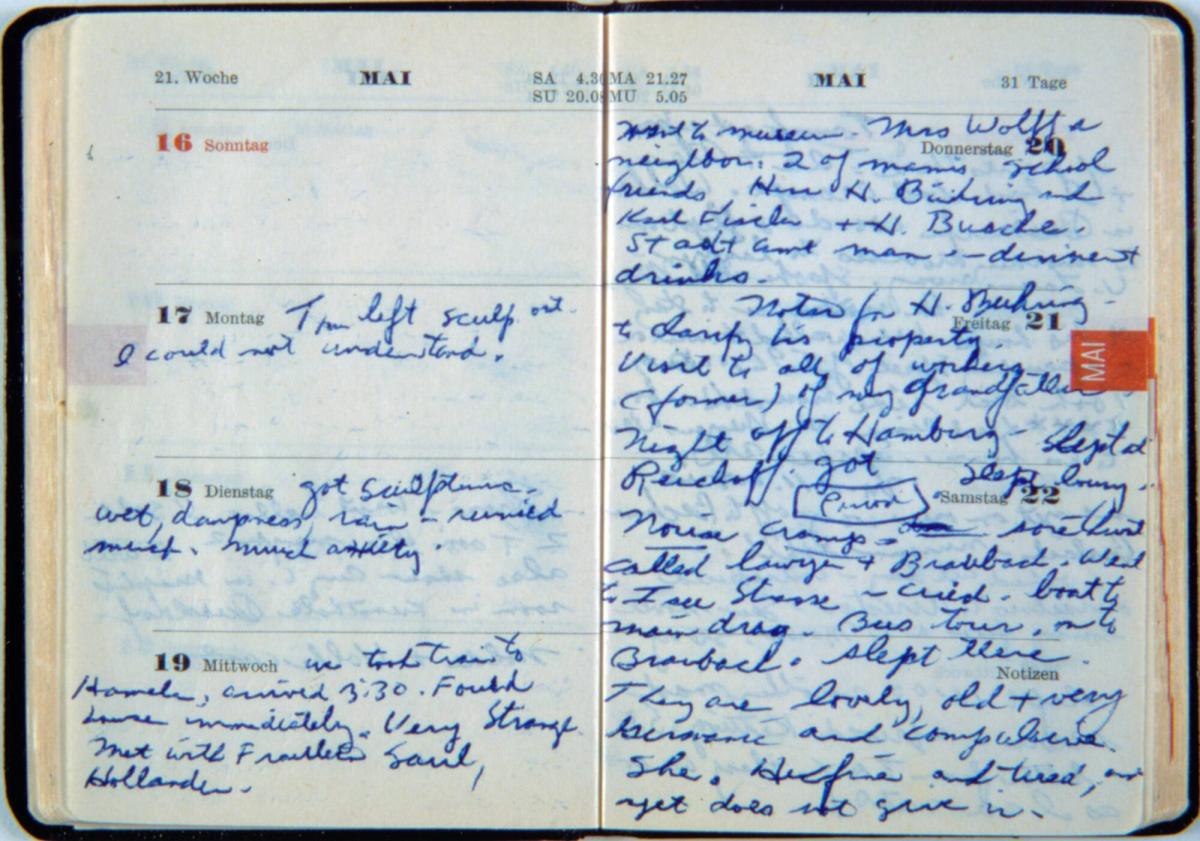 21. Woche MAI SA 4.30 MA 21.27 MAI 31 Tage
SU 20.08 MU 5.05
16 Sonntag
17 Montag Tom left sculp. out.
I could not understand.
18 Dienstag got sculpture.
wet, dampness, rain – ruined
much. Much anxiety.
19 Mittwoch we took train to
Hameln, arrived 3:30. Found
house immediately. Very Strange.
Met with Fraulein Saul,
Hollander.
visit to museum. Mrs Wolff a
Donnerstag 20
neighbor: 2 of mamis school
friends Herr H. and
Karl Fischer + H. Busche.
Stadt amt man – dinner +
drinks.
Notar for H.
Freitag 21
to clarify his property.
Visit to all of workers
(former) of my grandfather
Night off to Hamburg – Slept at
Reichshof. got slept lousy.
Samstag 22
cramps – sore throat
called lawyer + Brabach. Went
to – cried. boat to
main drag. Bus tour, on to
Braubach. slept there.
Notizen
They are lovely, old + very
Germanic and compulsive.
She. Hes fine and tired, and
yet does not give in.
MAI